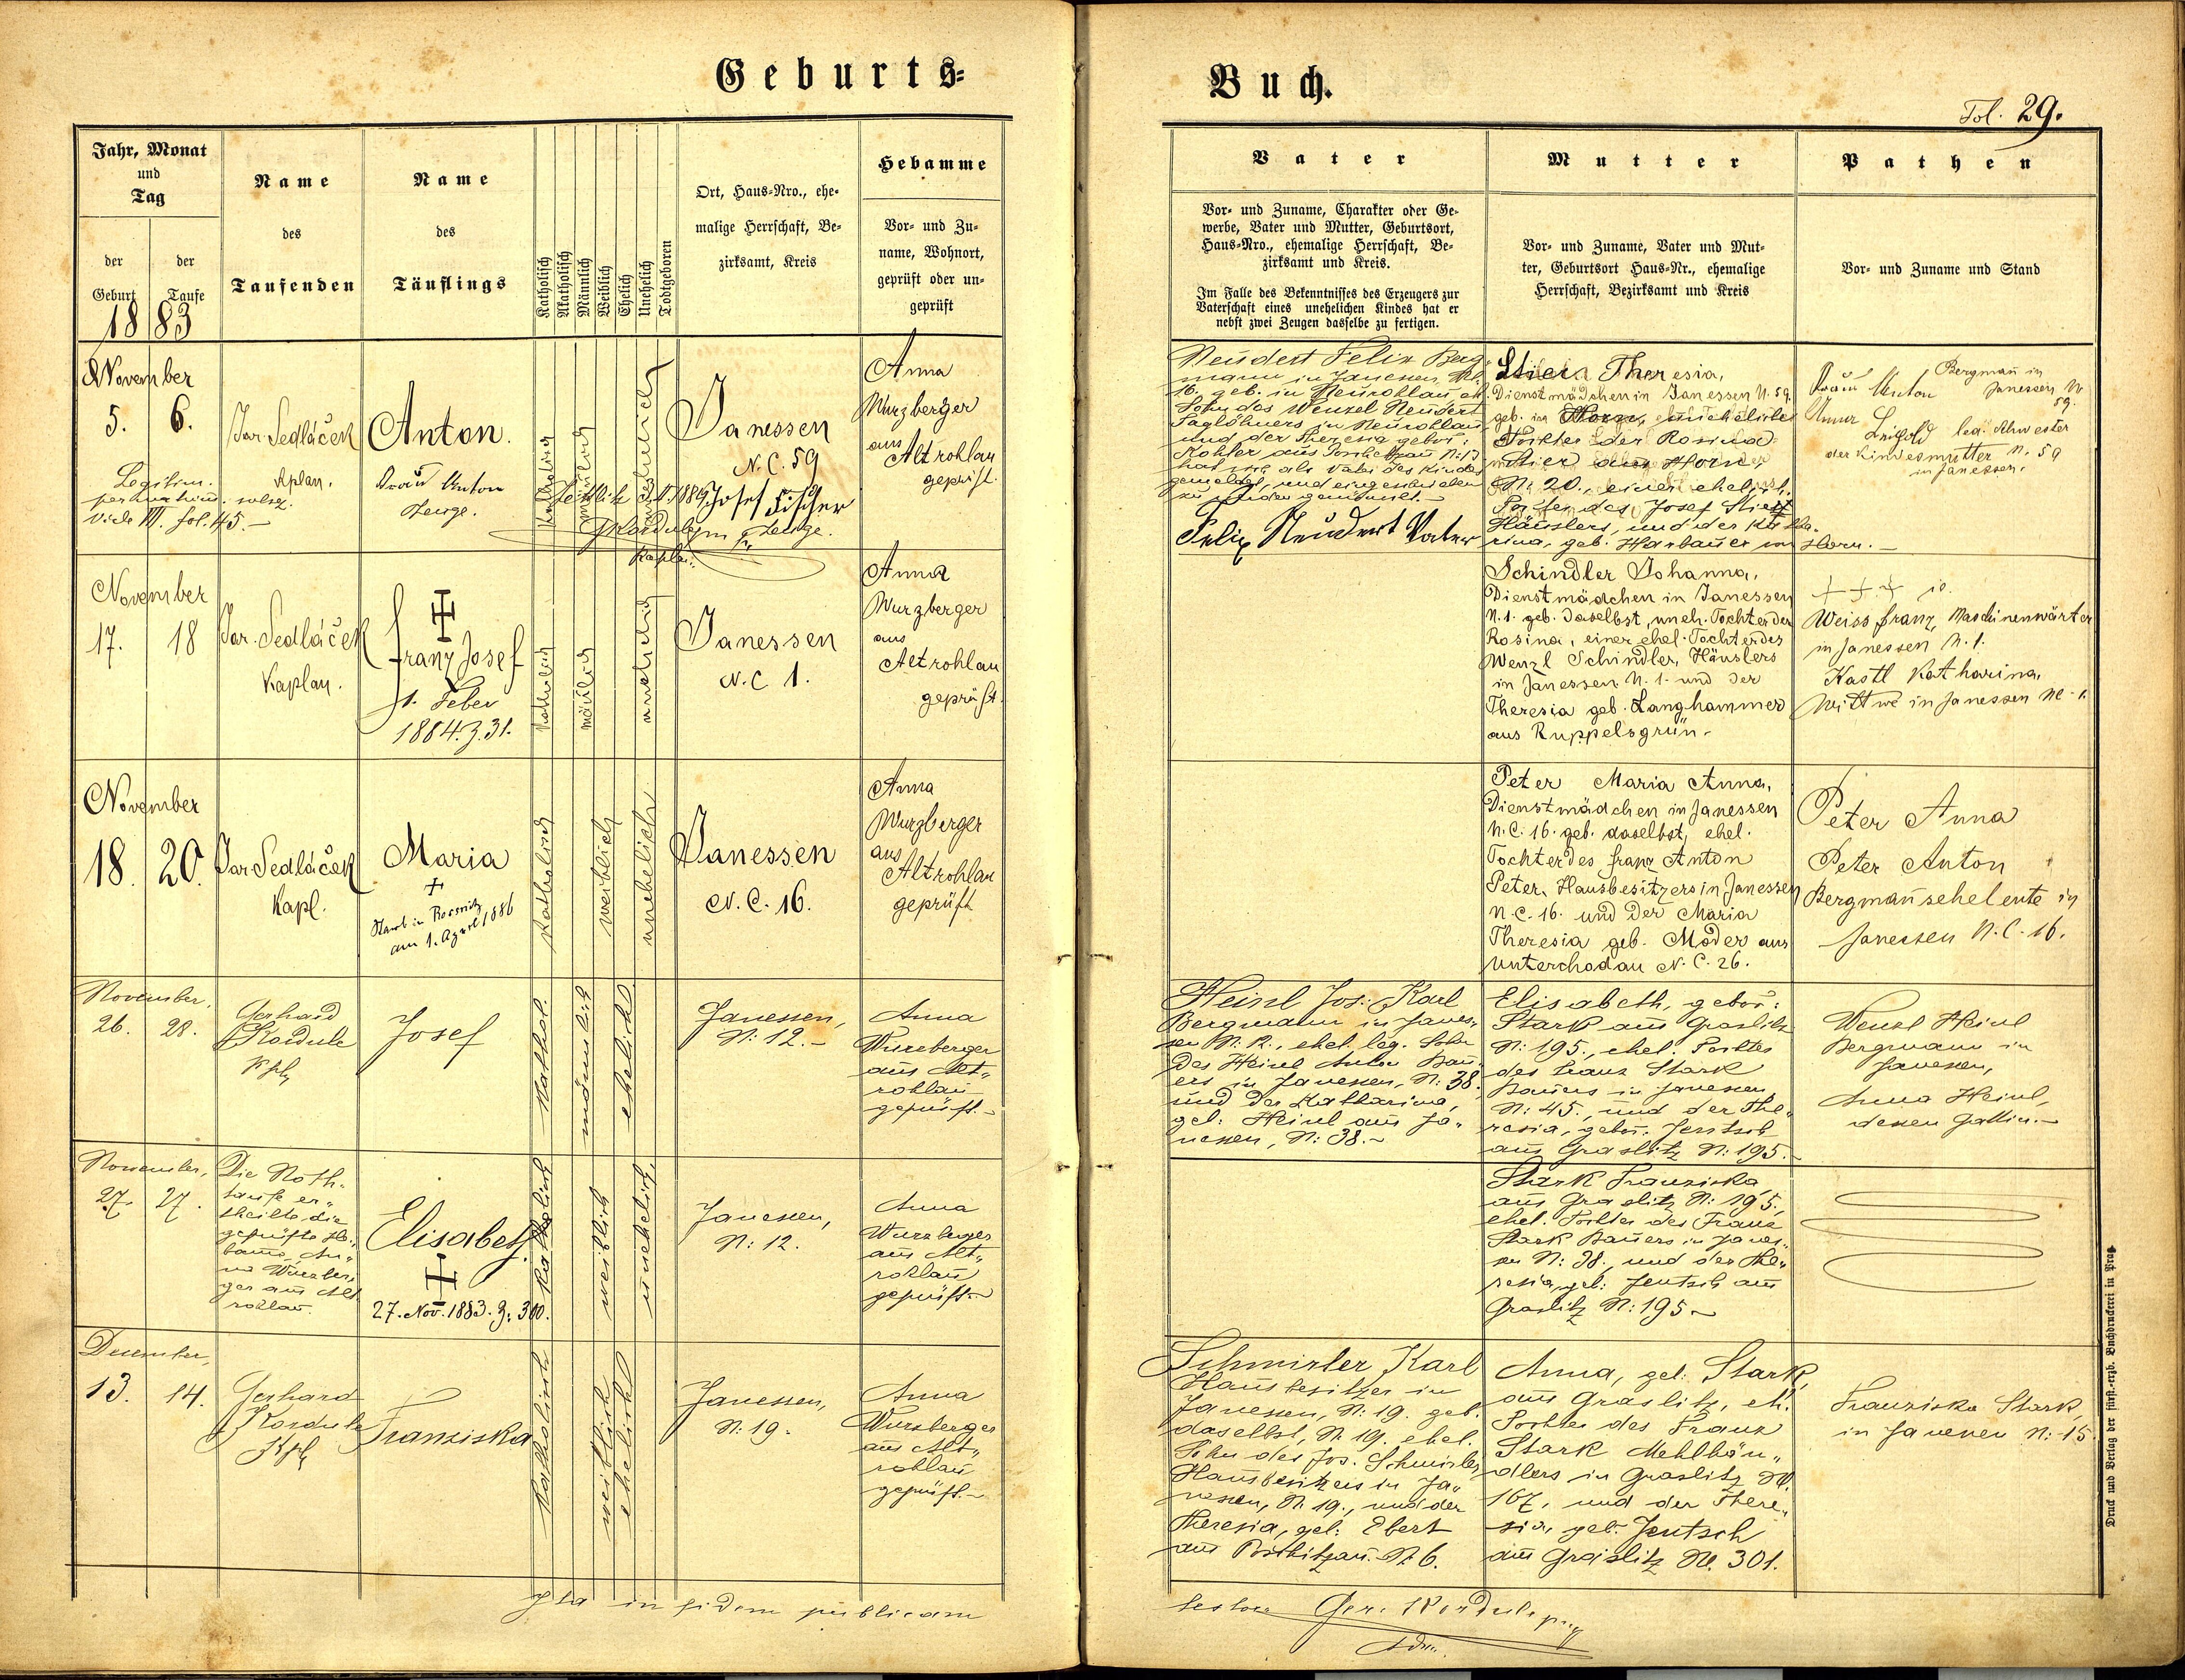 Geburts=
Buch.
Fol. 29.
Jahr, Monat
und
Tag
der
Geburt
der
Taufe
1883
Name
des
Taufenden
Name
des
Täuflings
Katholisch
Akatholisch
Männlich
Weiblich
Ehelich
Unehelich
Todtgeboren
Ort, Haus=Nro., ehe=
malige Herrschaft, Be=
zirksamt, Kreis
Hebamme
Vor= und Zu=
name, Wohnort,
geprüft oder un=
geprüft
Vater
Vor= und Zuname, Charakter oder Ge=
werbe, Vater und Mutter, Geburtsort,
Haus=Nro., ehemalige Herrschaft, Be=
zirksamt und Kreis.
Im Falle des Bekenntnisses des Erzeugers zur
Vaterschaft eines unehelichen Kindes hat er
nebst zwei Zeugen dasselbe zu fertigen.
Mutter
Vor= und Zuname, Vater und Mut=
ter, Geburtsort Haus=Nr., ehemalige
Herrschaft, Bezirksamt und Kreis
Pathen
Vor= und Zuname und Stand
November
5.
6.
Jar. Sedláček
Anton.
Anton
Zeuge.
vide fol. 45.
katholisch
männlich
Janessen
N. C. 59
Josef Fischer
Zeuge.
Anna
Wurzberger
aus
Altrohlau
geprüft.
Neudert Felix Berg=
mann in Janessen, N.
16, geb. in Neurohlau, eh.
Sohn des Wenzel Neudert
Taglöhners in Neurohlau
und der Theresia gebor:
Felix Neudert Vater
Theresia,
Dienstmädchen in Janessen N. 59.
geb. in Horn, uneheliche
Tochter der Rosina
aus Horn,
N: 20., einer ehelich.
Tochter des Josef
Häuslers, und der Katha=
rina, geb. Harbauer von Horn.
Bergmañ in
Anton Janessen N.
59.
led. Schwester
der Kindesmutter N. 59
in Janessen.
November
17.
18
Jar. Sedláček
Kaplan.
Franz Josef
1. Feber
1884. Z. 31.
katholisch
männlich
unehelich
Janessen
N. C 1.
Anna
Wurzberger
aus
Altrohlau
geprüft.
Schindler Johanna,
Dienstmädchen in Janessen
N. 1. geb. daselbst, uneh. Tochter der
Rosina, einer ehel. Tochter des
Wenzl Schindler, Häuslers
in Janessen N. 1. und der
Theresia geb. Langhammer
aus Ruppelsgrün.
Weiss Franz, Maschinenwärter
in Janessen N. 1.
Kastl Katharina,
Wittwe in Janessen N. 1.
November
18.
20.
Jar Sedláček
Kapl.
Maria
+
Starb in
am 1. April 1886
katholisch
weiblich
unehelich
Janessen
N. C. 16.
Anna
Wurzberger
aus
Altrohlau
geprüft
Peter Maria Anna,
Dienstmädchen in Janessen
N. C. 16. geb. daselbst, ehel.
Tochter des Franz Anton
Peter, Hausbesitzers in Janessen
N. C. 16. und der Maria
Theresia geb. Moder aus
Unterchodau N. C. 26.
Peter Anna
Peter Anton
Bergmañseheleute in
Janessen N. C. 16.
November,
26.
28.
Gerhard
Kordule
Kpl.
Josef
kathol.
männlich
ehelich
Janessen,
N: 12.
Anna
Wurzberger
aus Alt=
rohlau
geprüft.
Heinl Jos. Karl
Bergmann in Janes=
sen N: 12., ehel. leg. Sohn
des Heinl Anton Bau=
ers in Janessen, N: 38.
und der Katharina,
geb: Heinl aus Ja=
nessen, N: 38.
Elisabeth, gebor:
Stark aus Graslitz
N: 195., ehel. Tochter
des Franz Stark
Bauers in Janessen
N: 45., und der The=
resia, gebor. Jentsch
aus Graslitz N: 195.
Wenzl Heinl
Bergmann in
Janessen,
Anna Heinl,
dessen Gattin.
November,
27.
27.
Die Noth=
taufe er=
theilte die
geprüfte He=
bamme, An=
na Wurzber=
ger aus Alt
rohlau.
Elisabeth
27. Nov. 1883. Z. 300.
katholisch
weiblich
unehelich
Janessen,
N: 12.
Anna
Wurzberger
aus Alt=
rohlau
geprüft.
Stark Franziska
aus Graslitz N: 195.,
ehel. Tochter des Franz
Stark Bauers in Janes=
sen N: 38., und der The=
resia, geb: Jentsch aus
Graslitz N: 195.
December,
13.
14.
Gerhard
Kordule
Kpl.
Franziska
katholisch
weiblich
ehelich
Janessen,
N: 19.
Anna
Wurzberger
aus Alt=
rohlau
geprüft.
Schmirler Karl
Hausbesitzer in
Janessen, N: 19. geb.
daselbst, N: 19. ehel.
Sohn des Jos. Schmirler,
Hausbesitzers in Ja=
nessen, N. 19., und der
Theresia, geb: Ebert
aus N. 6.
Anna, geb: Stark,
aus Graslitz, eh.
Tochter des Franz
Stark Mehlhän=
dlers in Graslitz N.
167. und der There=
sia, geb. Jentsch
aus Graslitz N. 301.
Franziska Stark,
in Janessen N: 15.
Ita in fidem publicam
testor Ger. Kordule
Adm.
Druck und Verlag der fürst.=erzb. Buchdruckerei in Prag.